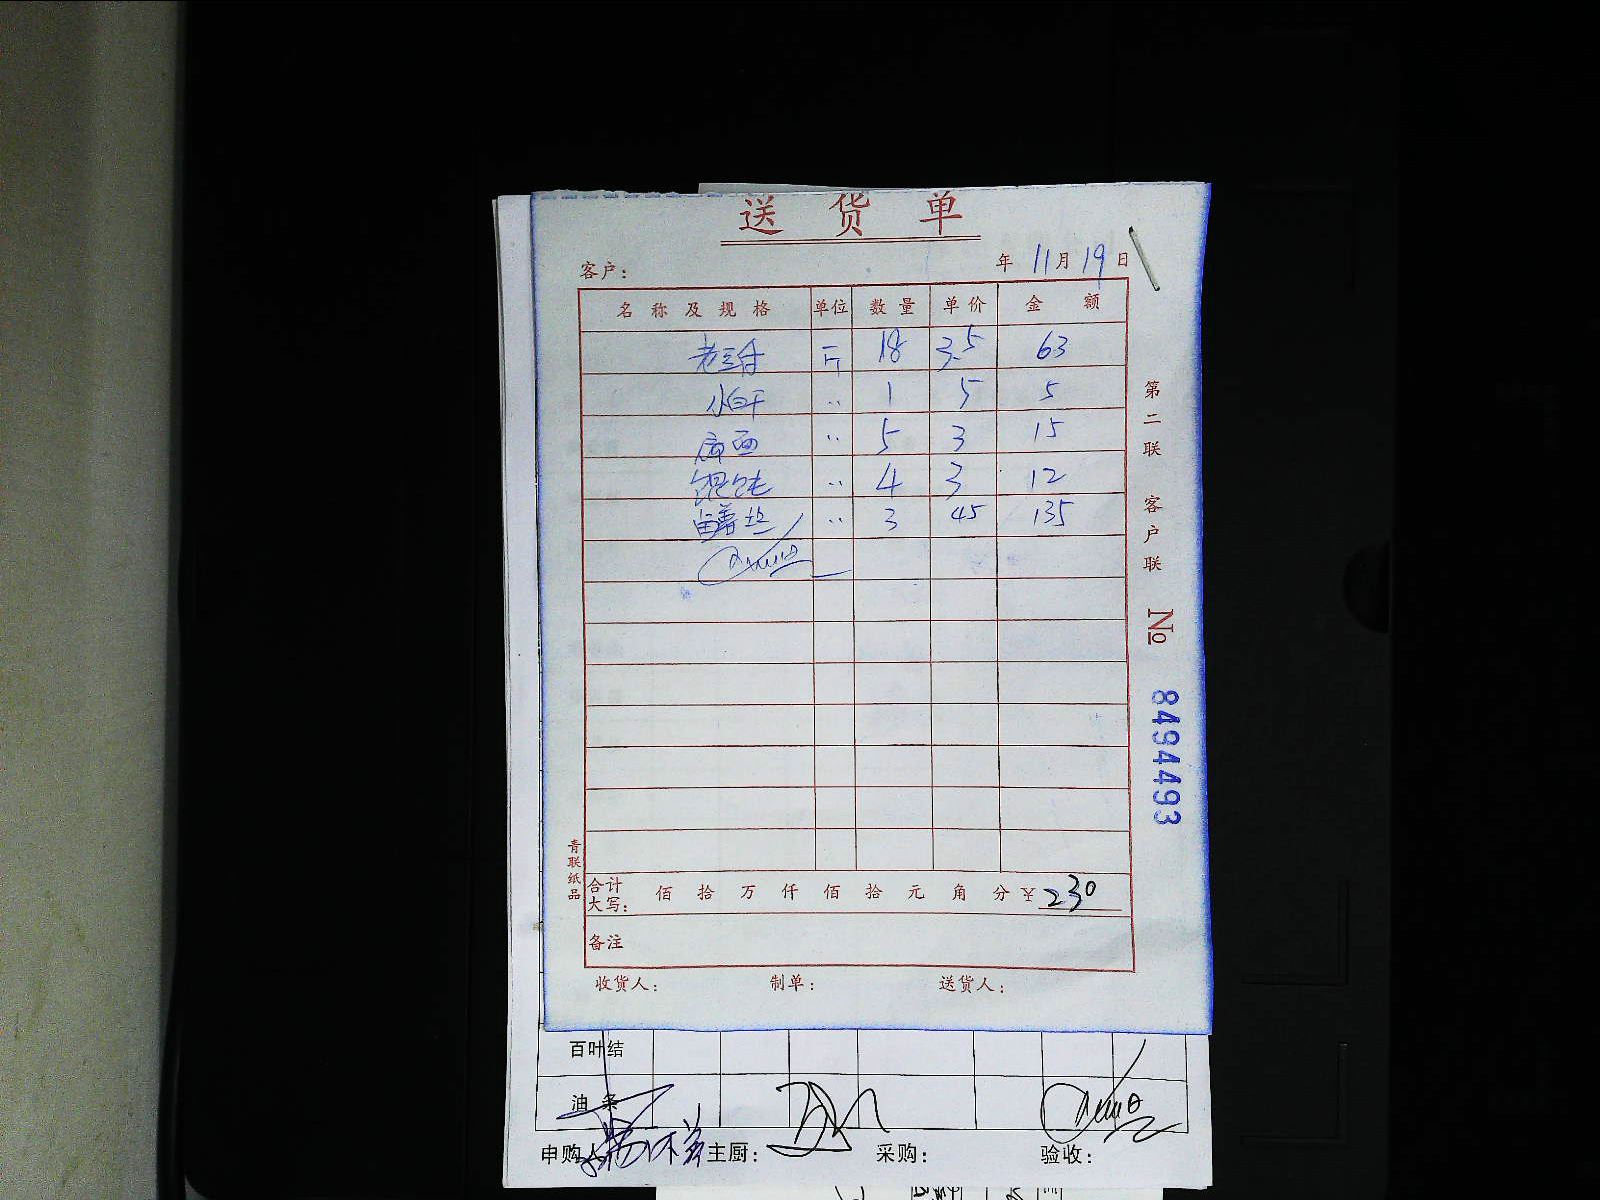 送货单
客户： 年 11月19日
名称及规格 单位 数量 单价 金额
斤 18 3.5 63
小白干 〃 1 5 5
〃 5 3 15
馄饨 〃 4 3 12
鳝丝 〃 3 45 135
合计大写： 佰 拾 万 仟 佰 拾 元 角 分 ¥ 230
备注
收货人： 制单： 送货人：
第二联 客户联 No 8494493
青联纸品
百叶结
油条
申购人 主厨： 采购： 验收：